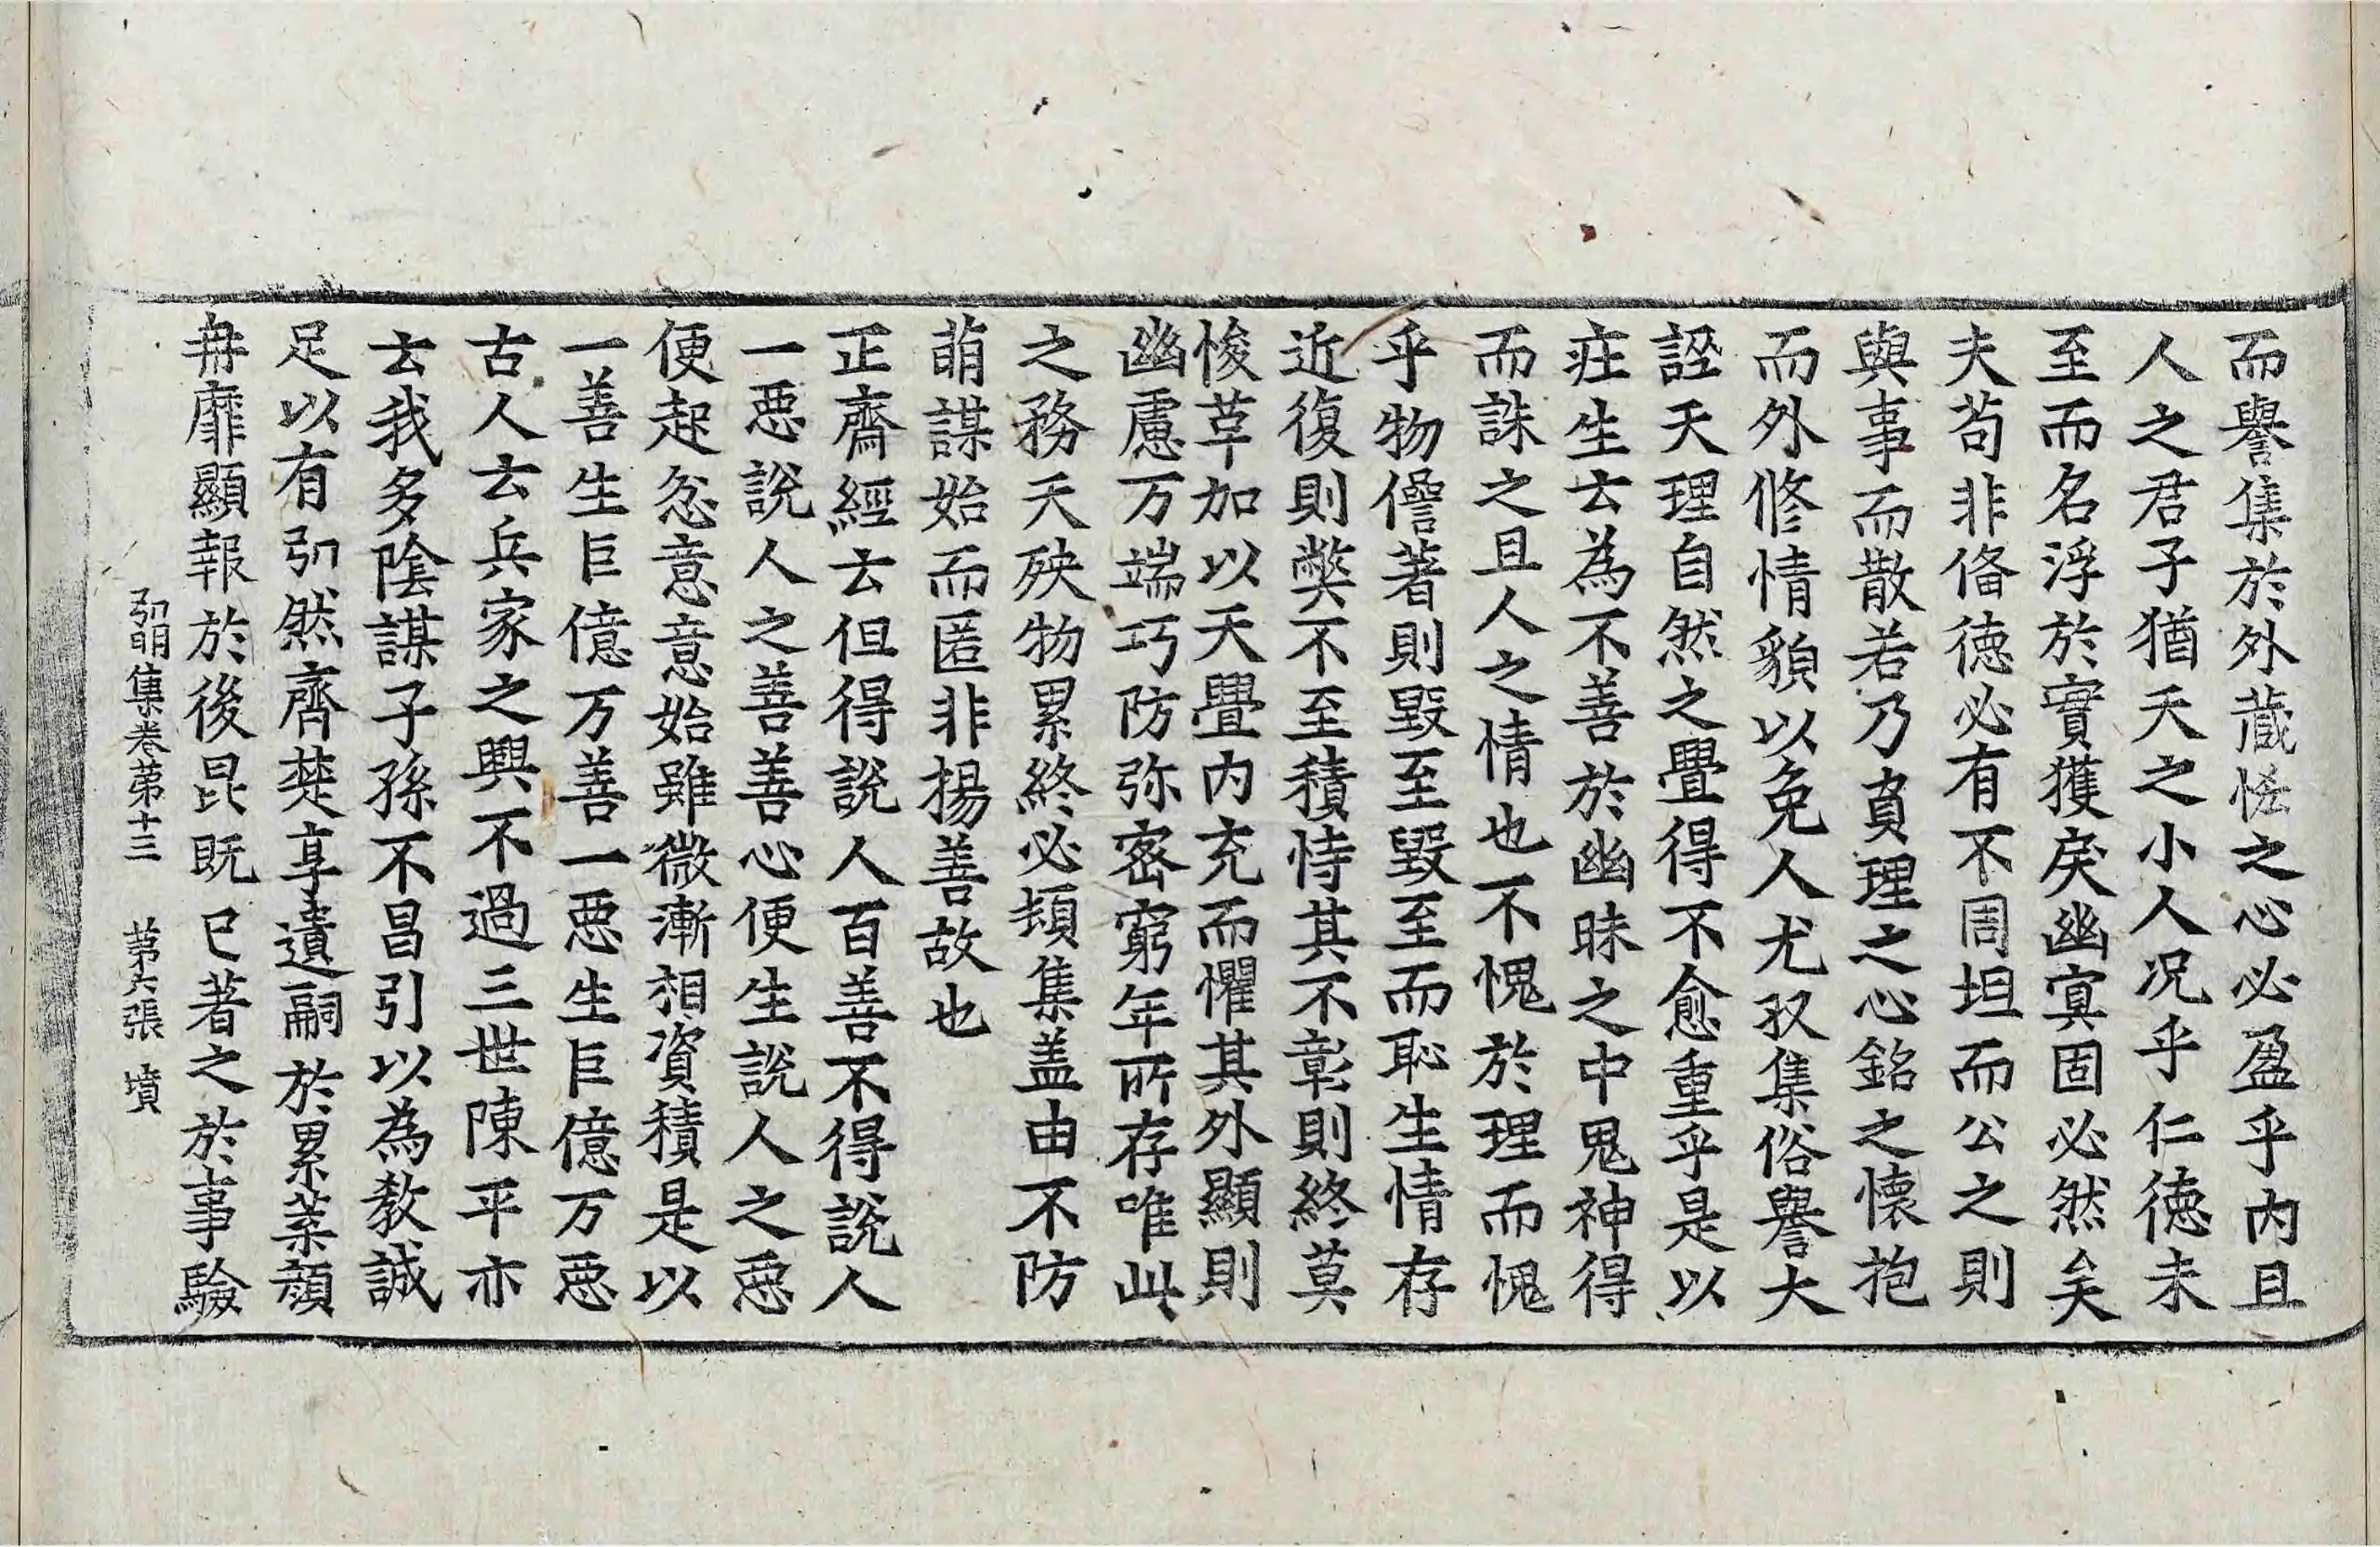 而譽集於外藏恡之心必盈乎內且
人之君子猶天之小人况乎仁德未
至而名浮於實獲戾幽冥固必然矣
夫苟非俻德必有不周坦而公之則
與事而散若乃負理之心銘之懷抱
而外修情貌以免人尤収集俗譽大
誣天理自然之舋得不愈重乎是以
疰生云為不善於幽昧之中鬼神得
而誅之且人之情也不愧於理而愧
乎物僭著則毀至毀至而恥生情存
近復則弊不至積恃其不彰則終莫
悛革加以天舋內充而懼其外顯則
幽慮万端巧防弥密窮年所存唯此
之務天殃物累終必頓集盖由不防
萌謀始而匿非揚善故也
正齋經云但得說人百善不得說人
一惡說人之善善心便生說人之惡
便起忿意意始雖微漸相資積是以
一善生巨億万善一惡生巨億万惡
古人云兵家之興不過三世陳平亦
云我多陰謀子孫不昌引以為教誠
足以有弘然齊楚享遺嗣於累葉顏
冉靡顯報於後昆既已著之於事驗
弘明集卷第十三 第六張 墳